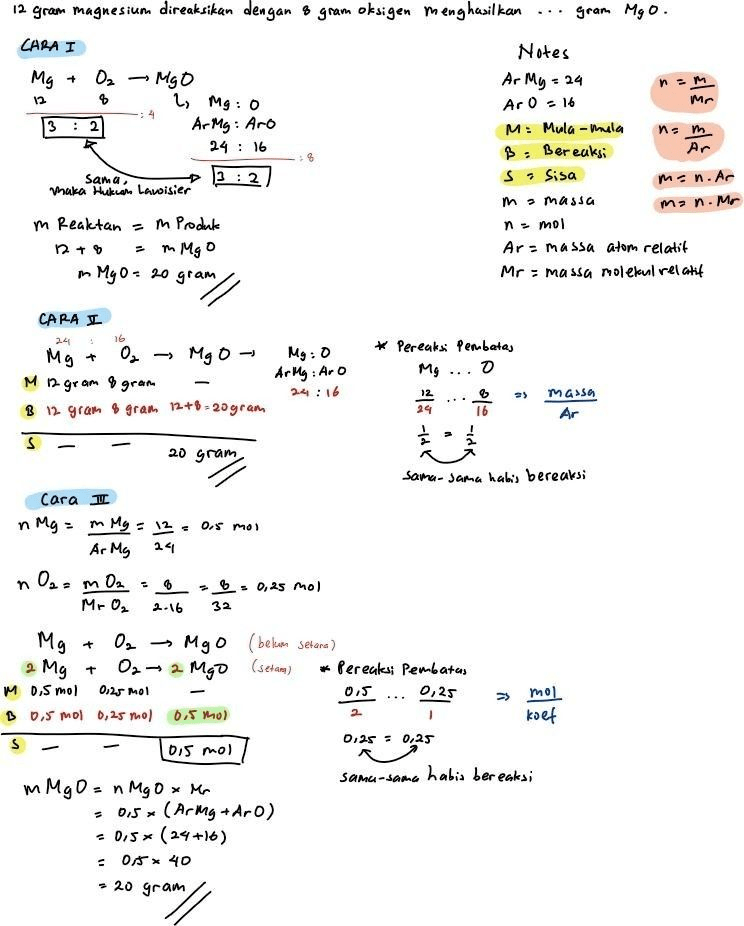 12 gram magnesium direaksikan dengan 8 gram oksigen menghasilkan ... gram MgO.
CARA I
Mg + O₂ → MgO
12 8
: 4
3 : 2
Mg : O
Ar Mg : Ar O
24 : 16
: 8
3 : 2
Sama,
maka Hukum Lavoisier
m Reaktan = m Produk
12 + 8 = m MgO
m MgO = 20 gram
Notes
Ar Mg = 24
Ar O = 16
M = Mula-mula
B = Bereaksi
S = Sisa
m = massa
n = mol
Ar = massa atom relatif
Mr = massa molekul relatif
n = m/Mr
n = m/Ar
m = n . Ar
m = n . Mr
CARA II
24 : 16
Mg + O₂ → MgO → Mg : O
Ar Mg : Ar O
24 : 16
M 12 gram 8 gram –
B 12 gram 8 gram 12+8=20gram
S – – 20 gram
* Pereaksi Pembatas
Mg ... O
12/24 ... 8/16 ⇒ massa/Ar
1/2 = 1/2
sama-sama habis bereaksi
Cara III
n Mg = m Mg/Ar Mg = 12/24 = 0,5 mol
n O₂ = m O₂/Mr O₂ = 8/2.16 = 8/32 = 0,25 mol
Mg + O₂ → MgO (belum setara)
2 Mg + O₂ → 2 MgO (setara)
M 0,5 mol 0,25 mol –
B 0,5 mol 0,25 mol 0,5 mol
S – – 0,5 mol
* Pereaksi Pembatas
0,5/2 ... 0,25/1 ⇒ mol/koef
0,25 = 0,25
sama-sama habis bereaksi
m MgO = n MgO × Mr
= 0,5 × (Ar Mg + Ar O)
= 0,5 × (24+16)
= 0,5 × 40
= 20 gram